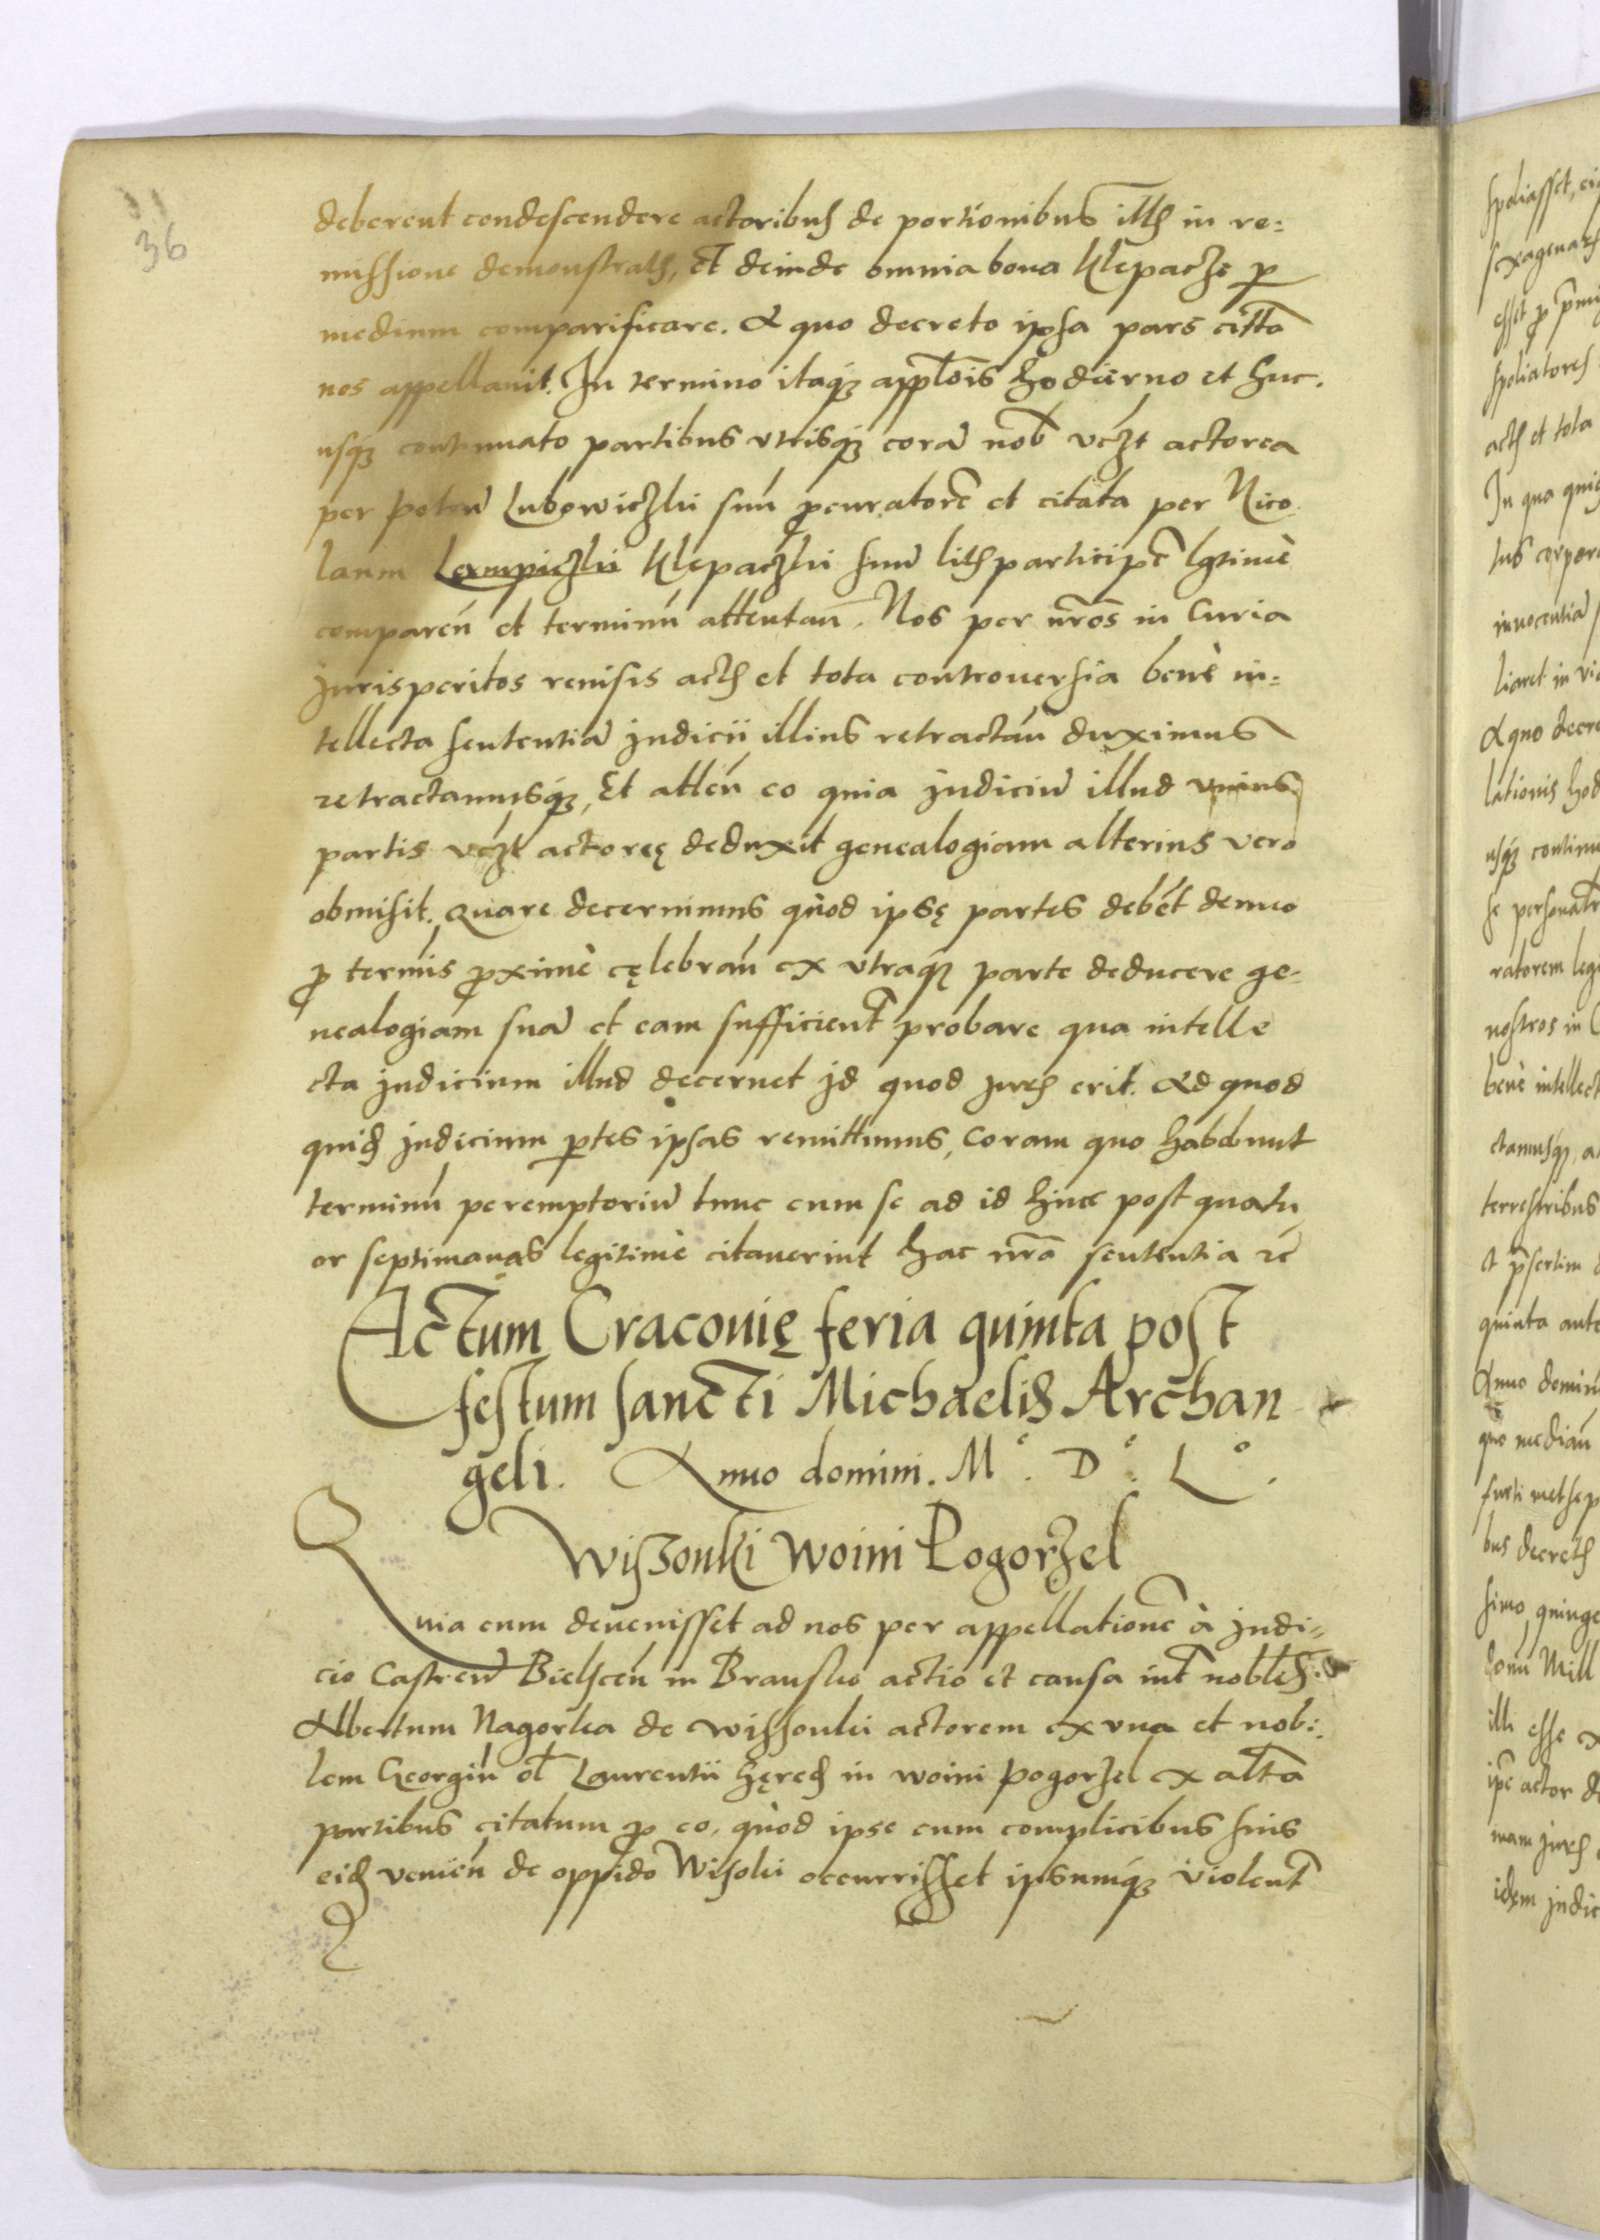 36
deberent condescendere actoribus de portionibus illis in re=
missione demonstratis, Et deinde omnia bona Klepacze p
medium comparificare. A quo decreto ipsa pars citta
nos appellauit. In termino itaq3 applois hodierno et huc
usq3 continuato partibus vtrisq3 corā nob vczt actorea
per Lubowiczki suū pcuratorē et citata per Nico
laum Lempiczki Klepaczki suū litis participē lgtimè
comparen̄ et terminū attentan̄. Nos per nr̄os in Curia
Jurisperitos reuisis actis et tota controuersia benè in=
tellecta sententiā Judicii illius retractan̄ duximus
retractamusq3, Et atten̄ eo quia Judiciū illud vnius
partis vczt actoreę deduxit genealogiam alterius vero
obmisit. Quare decernimus quòd ipsę partes debēt denuo
p termis pximè cęlebran̄ ex vtraq3 parte deducere ge-
nealogiam suā et eam sufficient probare qua intelle
cta Judicium illud decernet Id quod Juris erit. Ad quod
quid Judicium ptes ipsas remittimus, Coram quo habebunt
terminū peremptoriū tunc cum se ad id hinc post quatu
or septimanas legitimè citauerint hac nr̄a sententia rc̄
Actum Cracouię feria quinta post
festum sancti Michaelis Archan
geli. Anno domini. Mᵒ. Dᵒ. Lᵒ.
Wiszonki Woini Pogorzel
Quia cum deuenisset ad nos per appellationē à Judi=
cio Castren̄ Bielscen̄ in Bransko actio et causa int nobles
Albertum Nagorka de Wissonki actorem ex vna et nobi:
lem Georgiū ol Laurentii hęred in Woini Pogorzel ex alta
partibus citatum p eo, quòd ipse cum complicibus suis
eid venien̄ de oppido Wisoki occurrisset ipsumq3 violent